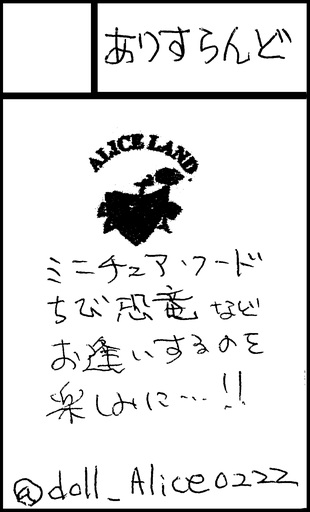 ありすらんど
ALICE LAND.
ミニチュア・フード
ちび恐竜など
お逢いするのを
楽しみに…!!
@doll_Alice0222